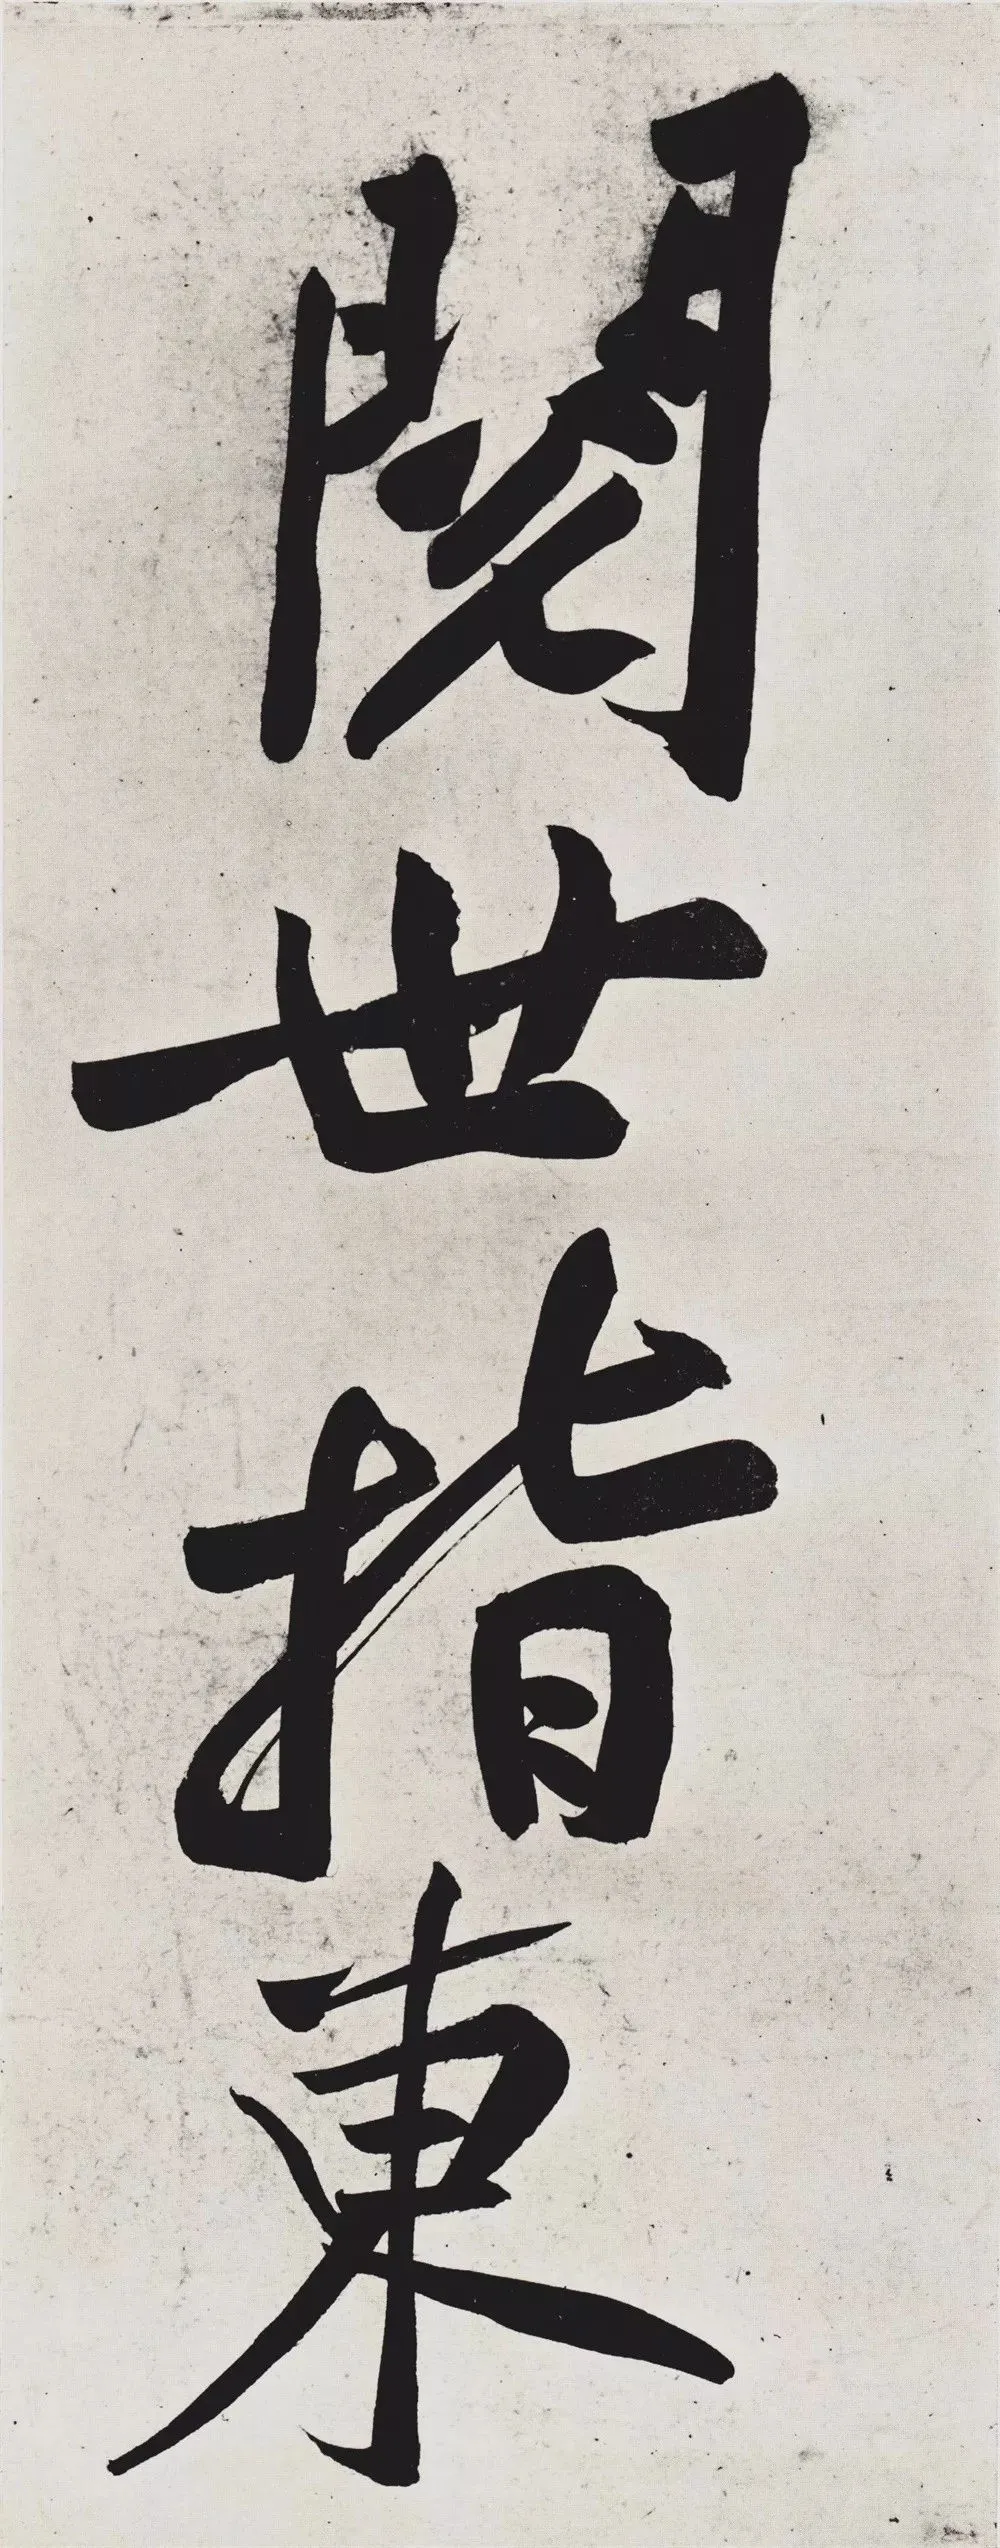 閱世指東